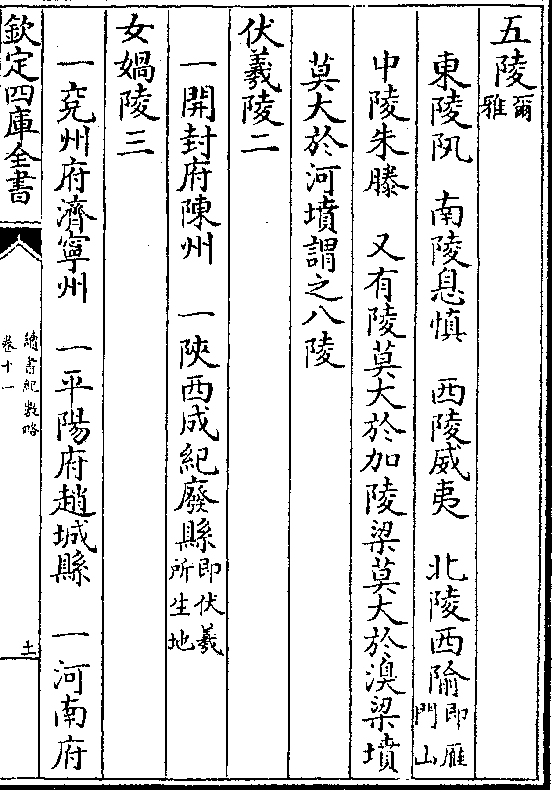 五陵爾雅
東陵阠　南陵息慎　西陵威夷　北陵西隃即雁門山
中陵朱滕　又有陵莫大於加陵梁莫大於湨梁墳
莫大於河墳謂之八陵
伏羲陵二
一開封府陳州　一陝西成紀廢縣即伏羲所生地
女媧陵三
一兖州府濟寧州　一平陽府趙城縣　一河南府
欽定四庫全書
讀書紀數略
卷十一
十一